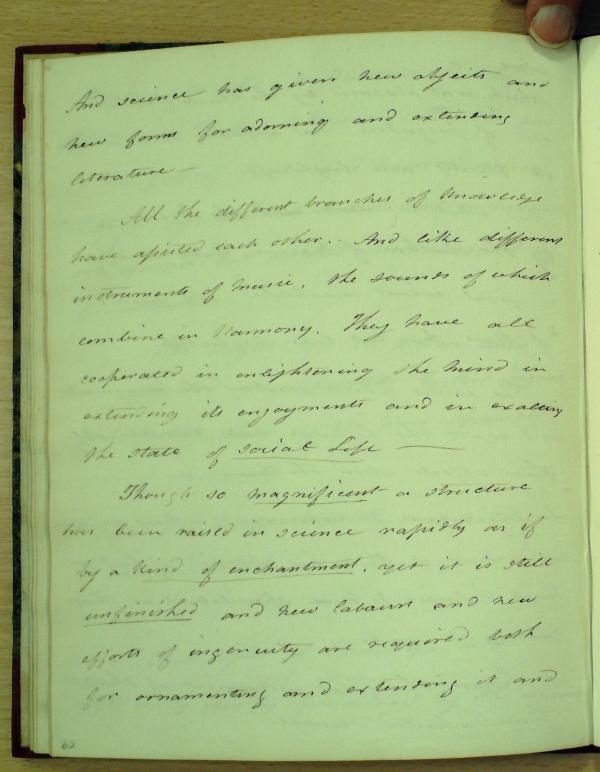 And science has given new objects and
new forms for adorning and extending
literature —
All the different branches of Knowledge
have assisted each other. And like different
instruments of Music, the sounds of which
combine in Harmony. They have all
cooperated in enlightening the Mind in
extending its enjoyments and in exalting
the state of social Life —
Though so magnificent a structure
has been raised in science rapidly as if
by a kind of enchantment. yet it is still
unfinished and new labours and new
efforts of ingenuity are required both
for ornamenting and extending it and
62